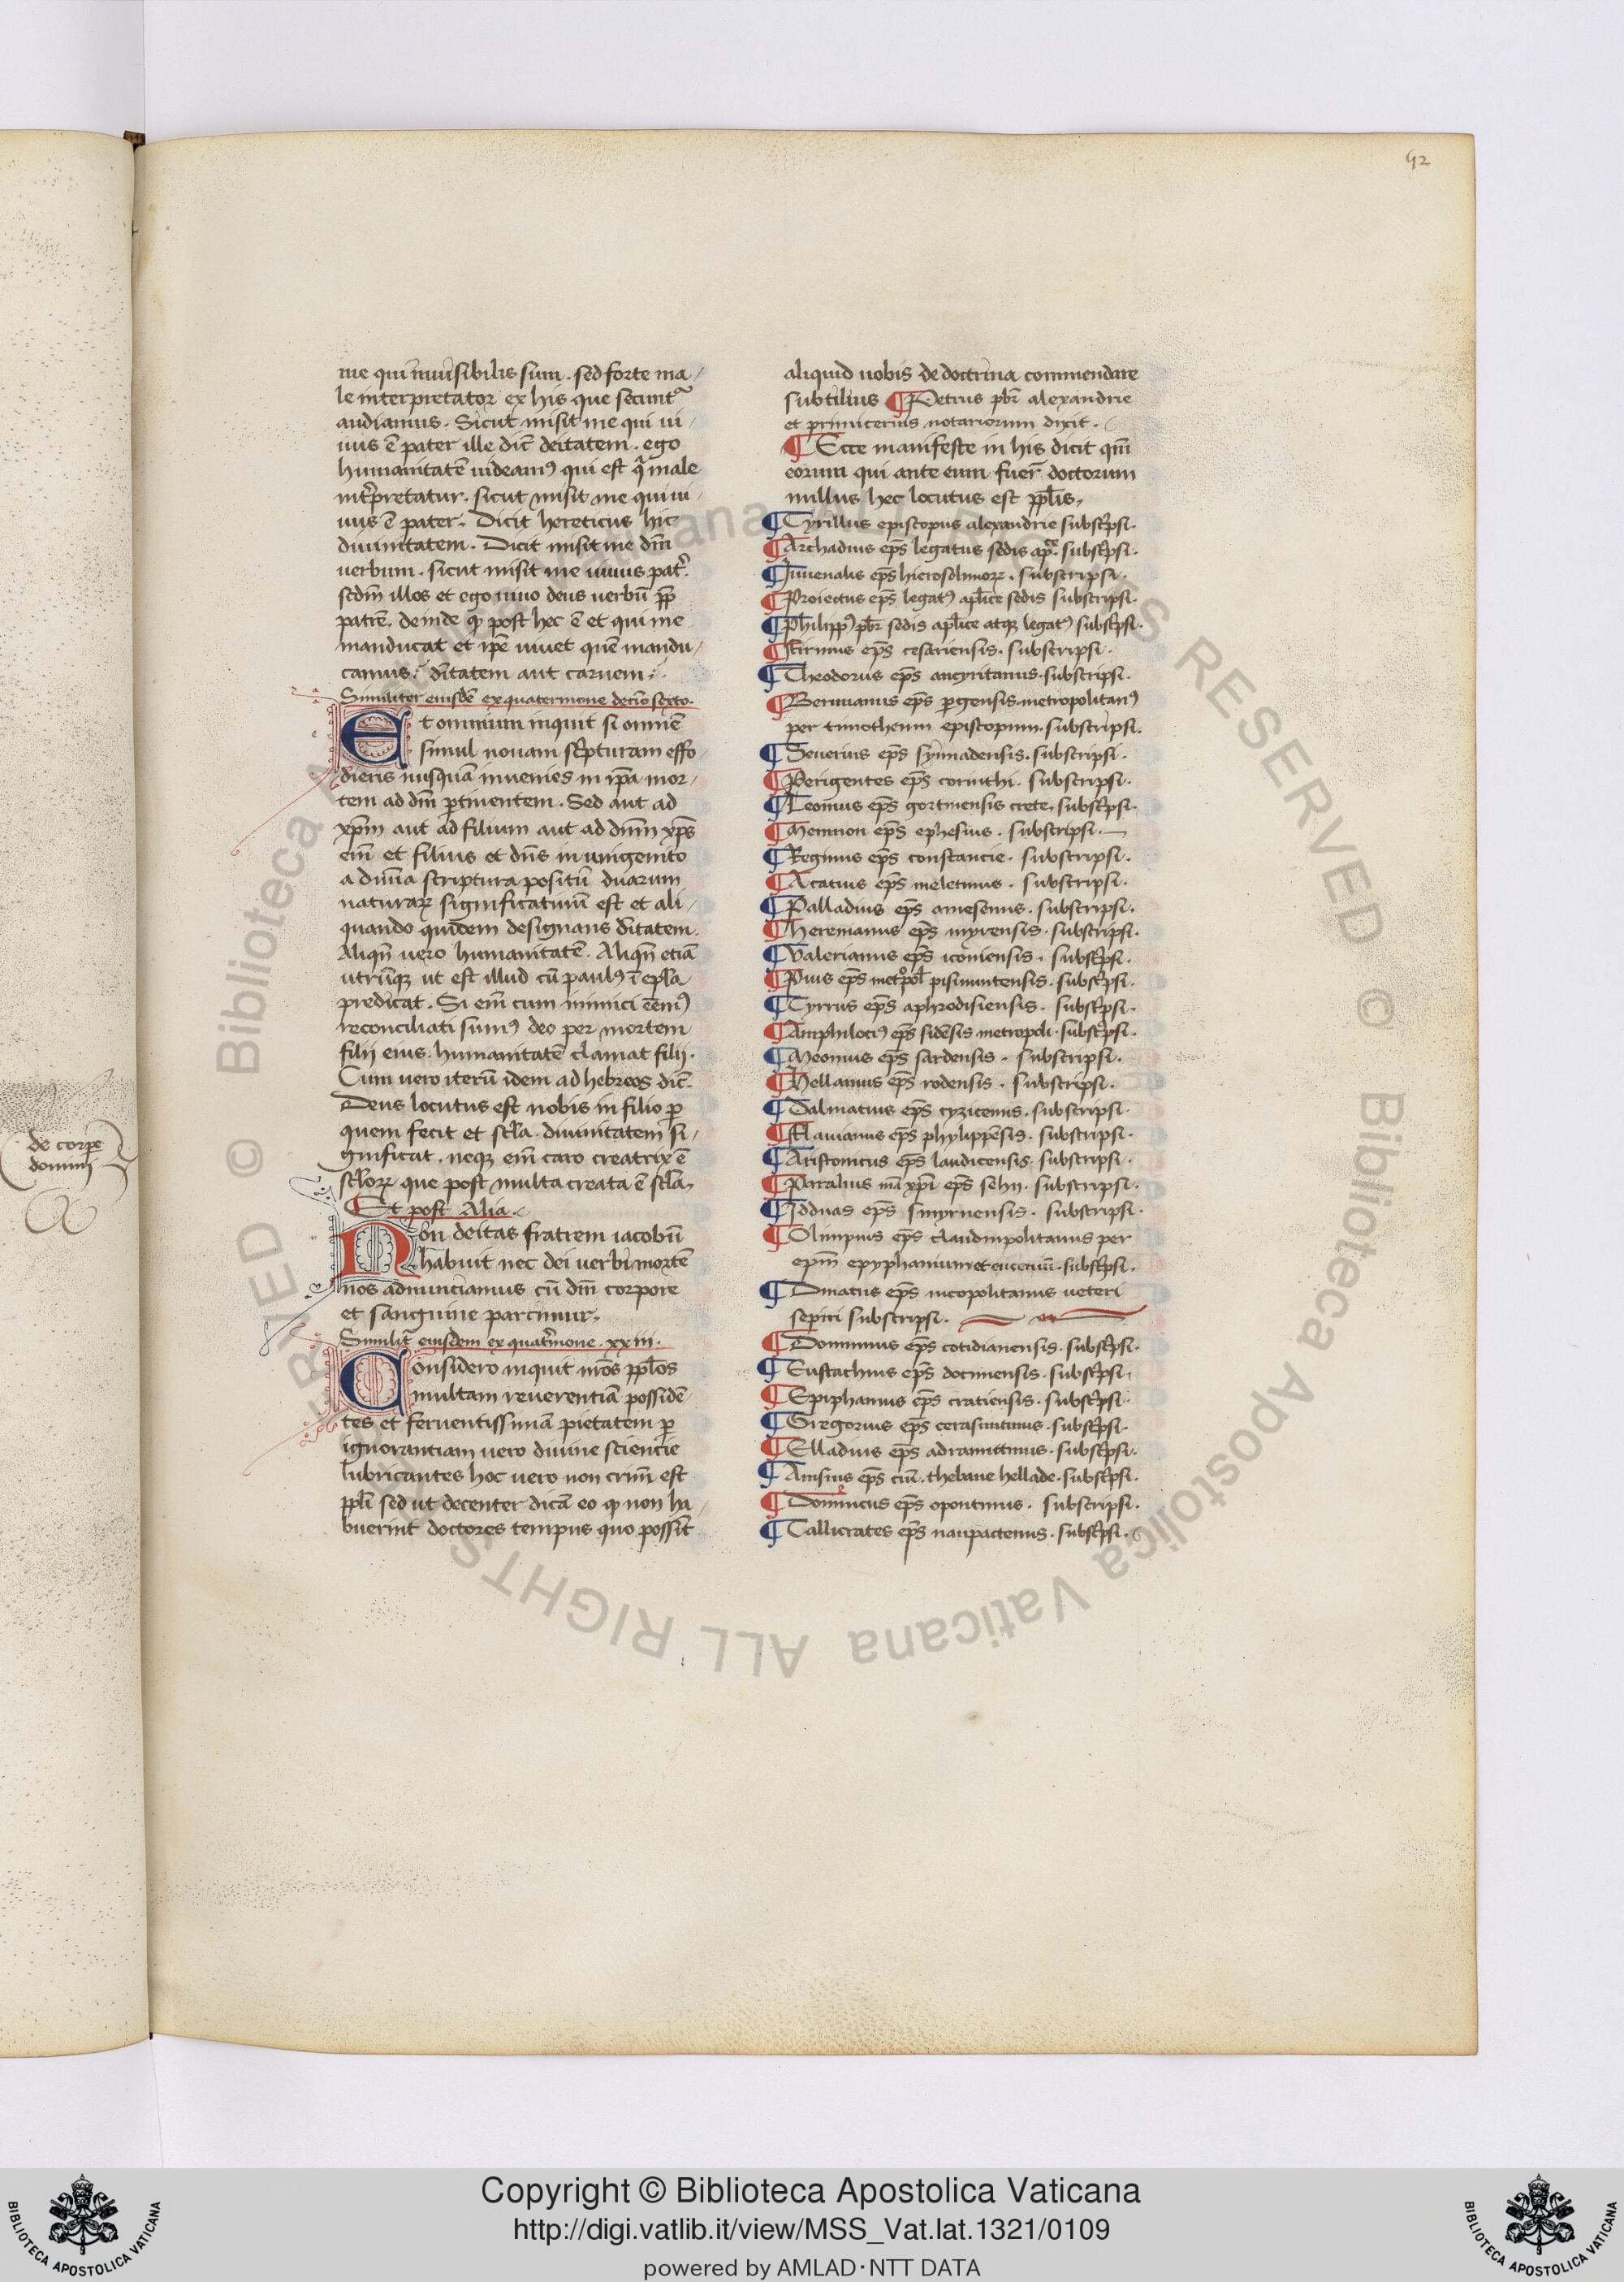 42
me qui inuisibilis sum . sed forte ma/
le interpretator ex his que secunt᷑
audiamus . Sicut misit me qui ui/
uus ē pater ille dic̄ deitatem . ego
humanitatē uideamꝰ qui est q̄ male
int̄pretatur . sicut misit me qui ui/
uus ē pater . Dicit hereticus hic
diuinitatem . Dicit misit me dm̄
uerbum . sicut misit me uiuus pat̄.
sedm̄ illos et ego uiuo deus uerbū ꝓp̄
patrē . deinde ꝙ post hec ē et qui me
manducat et ip̄e uiuet quē mandu/
camus : ditatem aut carnem :
Similiter eiusdē ex quaternione decio sexto .
Et omnium inquit si omnē
simul nouam sc̄pturam effo/
dieris nusquā inuenies in ip̄a mor/
tem ad dm̄ ꝑtinentem . Sed aut ad
xp̄m aut ad filium aut ad dnm̄ xp̄s
em̄ et filius et dn̄s in unigenito
a diuīa scriptura positū duarum
naturaꝝ significatiuū est et ali/
quando quidem designans ditatem .
Aliqn̄ uero humanitatē . Aliqn̄ etiā
utrūqꝫ ut est illud cū paulꝰ ī epl̄a
predicat . Si em̄ cum inimici eēmꝰ
reconciliati sumꝰ deo per mortem
filij eius . humanitatē clamat filij .
Cum uero iterū idem ad hebreos dic̄ .
Deus locutus est nobis in filio ꝑ
quem fecit et scl̄a . diuinitatem si/
gnificat . neqꝫ em̄ caro creatrix ē
scl̄oꝝ que post multa creata ē scl̄a
Et post Alia .
Non deitas fratrem iacobū
habuit nec dei uerbi mortē
nos adnunciamus cū dm̄ corpore
et sanguine parcimur .
Similit̄ eiusdem ex quat̄nione . xxiii .
Considero inquit nr̄os ppl̄os
multam reuerentiā possidē
tes et feruentissimā pietatem ꝑ
ignorantiam uero diuine sciencie
lubricantes hoc uero non crim̄ est
ppl̄i sed ut decenter dicā eo ꝙ non ha/
buerint doctores tempus quo possīt
aliquid uobis de doctrina commendare
subtilius ¶ Petrus pbr̄ alexandrie
et primicerius notariorum dixit .
¶ Ecce manifeste in his dicit qm̄
eorum qui ante eum fuer̄ doctorum
nullus hec locutus est ppl̄is .
¶ Cyrillus episcopus alexandrie subsc̄psi .
¶ Archadius ep̄s legatus sedis ap̄ce . subsc̄psi .
¶ Iuuenalis ep̄s hierosolimoꝝ . subscripsi .
¶ Proiectus ep̄s legatꝰ apl̄ice sedis subscripsi .
¶ Philippꝰ pbr̄ sedis apl̄ice atqꝫ legatꝰ subsc̄psi .
¶ Firmus ep̄s cesariensis . subscripsi .
¶ Theodorus ep̄s ancyritanus . subscripsi .
¶ Bermanus ep̄s ꝑgensis . metropolitanꝰ
per timotheum episcopum . subscripsi .
¶ Seuerius ep̄s synnadensis . subscripsi .
¶ Perigentes ep̄s corinthi . subscripsi .
¶ Leonius ep̄s gortinensis crete . subsc̄psi .
¶ Memnon ep̄s ephesius . subscripsi .
¶ Reginus ep̄s constancie . subscripsi .
¶ Acatius ep̄s meletinus . subscripsi .
¶ Palladius ep̄s amesenus . subscripsi .
¶ Heremanus ep̄s myrensis . subscripsi .
¶ Valerianus ep̄s iconiensis . subsc̄psi .
¶ Pius ep̄s metºpol̄ pisinuntensis . subsc̄psi .
¶ Tyrrus ep̄s aphrodisiensis . subsc̄psi .
¶ Amphilociꝰ ep̄s sidēsis metropoli . subsc̄psi .
¶ Meonius ep̄s sardensis . subscripsi .
¶ Hellanus ep̄s rodensis . subscripsi .
¶ Dalmatius ep̄s cyzicenus . subscripsi .
¶ Flauianus ep̄s phylippēsis . subscripsi .
¶ Aristonicus ep̄s laudicensis . subscripsi .
¶ Paralius mīa xp̄i ep̄s selm . subscripsi .
¶ Idduas ep̄s smyrnensis . subscripsi .
¶ Olimpius ep̄s claudinpolitanus per
epm̄ epyphanium et . subsc̄psi .
¶ Dinatus ep̄s nicopolitanus ueteri
sepiri subscripsi .
¶ Dominus ep̄s cotidianensis . subsc̄psi .
¶ Eustachius ep̄s docinensis . subsc̄psi .
¶ Epiphanius ep̄s cratiensis . subsc̄psi .
¶ Gregorius ep̄s cerasuntinus . subsc̄psi .
¶ Elladius ep̄s adramittinus . subsc̄psi .
¶ Anisius ep̄s ciuī . thebane hellade . subsc̄psi .
¶ Dominicus ep̄s opontinus . subscripsi .
¶ Callicrates ep̄s naupactenus . subsc̄psi .
de corpe
domini
© Biblioteca Apostolica Vaticana ALL RIGHTS RESERVED © Biblioteca Apostolica Vaticana ALL RIGHTS RESERVED
Copyright © Biblioteca Apostolica Vaticana
http://digi.vatlib.it/view/MSS_Vat.lat.1321/0109
powered by AMLAD·NTT DATA
BIBLIOTECA APOSTOLICA VATICANA
BIBLIOTECA APOSTOLICA VATICANA